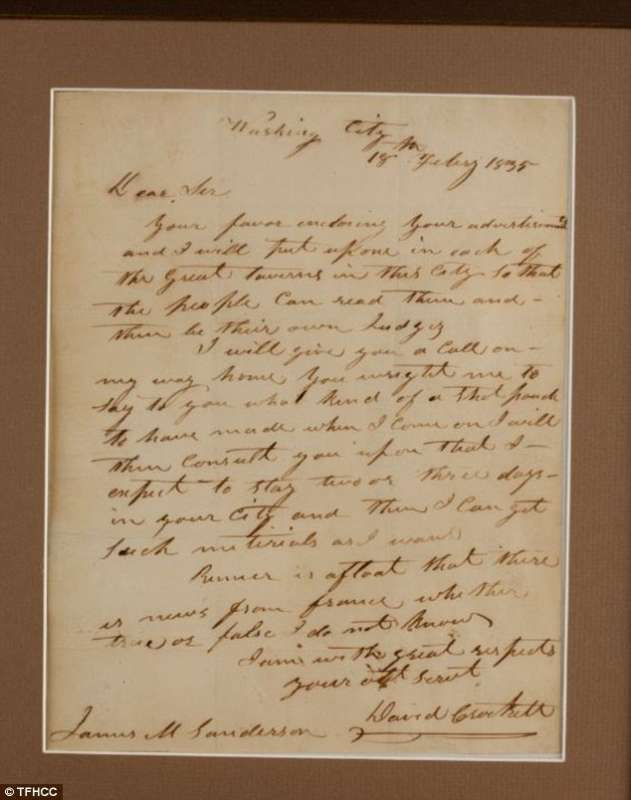 Washing City
18th Febry 1835
Dear Sir
Your favor enclosing your advertisment
and I will put up one in each of
the Great taverns in this City So that
the people Can read them and
then be their own Judges
I will give you a Call on
my way home You wright me to
Say to you what kind of a Shot pouch
to have made when I come on I will
then Consult you upon that I
expect to Stay two or three days
in your City and then I Can get
Such meterials as I want
Rumer is afloat that there
is news from france whether
true or false I do not know
I am with great respects
your obt Servt
David Crockett
James M Sanderson
© TFHCC